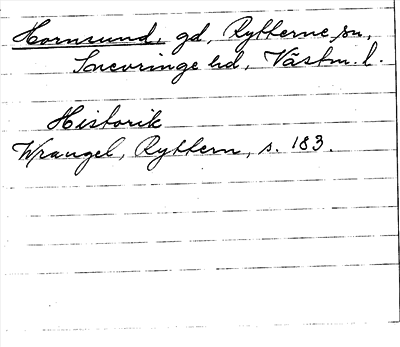 Hornsund, gd, Rytterne sn,
Snevringe hd, Västm. l.
Historik
Wrangel, Ryttern, s. 183.